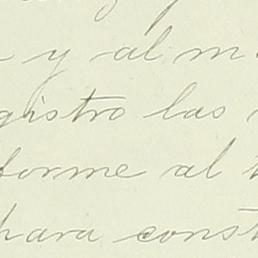 y al m
gistro las
forme al
para const